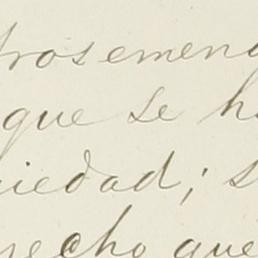 rosemen
que se h
iedad; s
recho que